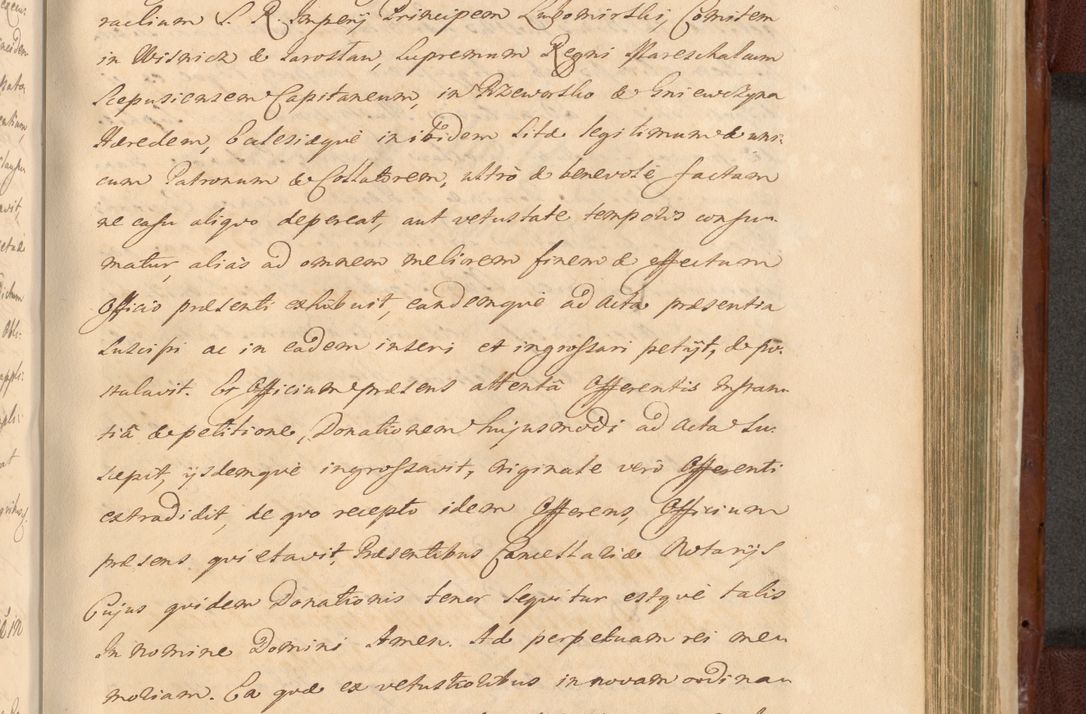 raclium S. R. Imperij Principem Lubomirski, Comitem
in Wisnicz & Jaroslau, Supremum Regni Mareschalcum
Scepusiensem Capitaneum, in Przeworsko & Gniewczyna
Hæredem, Ecclesiæquè in ibidem sitæ legitimum & uni-
cum Patronum & Collatorem, ultrò & benevolè factam
ne casu aliquo depereat, aut vetustate temporis consu-
matur, aliàs ad omnem meliorem finem & effectum
Officio præsenti exhibuit, eandemquè ad Acta præsentia
suscipi ac in eadem inseri et ingrossari petijt, & po-
stulavit. Et Officium præsens attentâ Offerentis Instan-
tiâ & petitione, Donationem hujusmodi ad Acta su-
scepit, ijsdemquè ingrossavit, Originale verò Offerenti
extradidit, de quo recepto idem Offerens, Officium
præsens quietavit, Præsentibus Cancellariæ Notarijs
Cujus quidem Donationis tenor sequitur estquè talis
In Nomine Domini Amen. Ad perpetuam rei me-
moriam. Ea quæ ex vetustioribus in novam ordinan